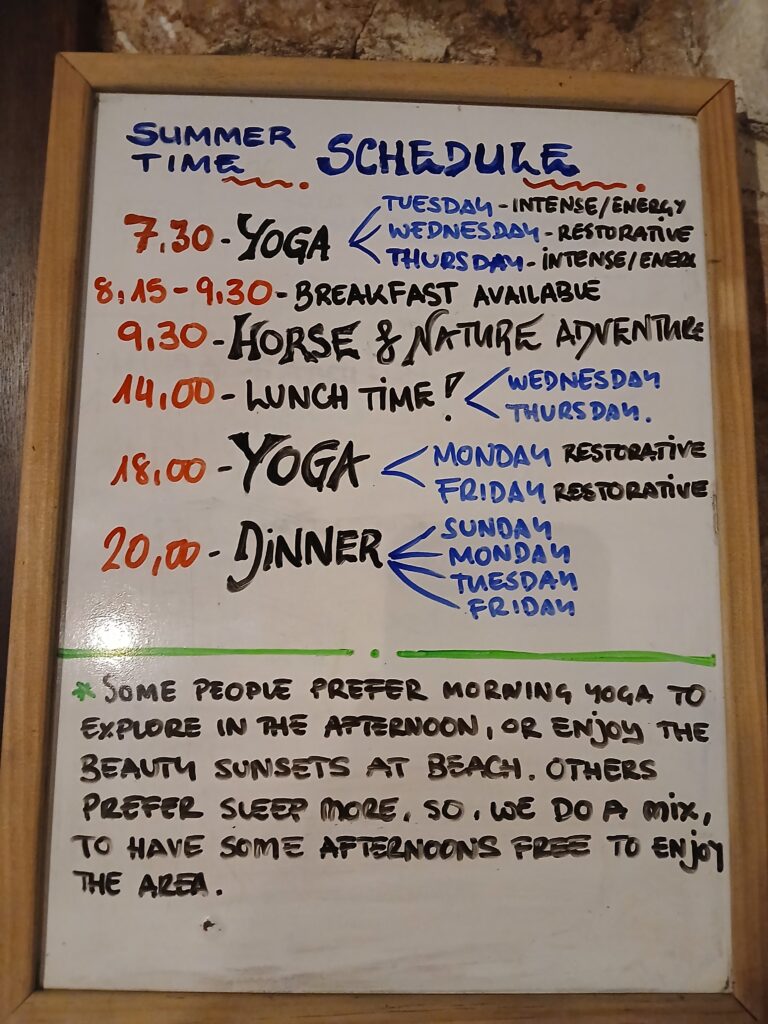 SUMMER TIME SCHEDULE
7.30 - YOGA
TUESDAY - INTENSE/ENERGY
WEDNESDAY - RESTORATIVE
THURSDAY - INTENSE/ENERG
8,15 - 9.30 - BREAKFAST AVAILABLE
9.30 - HORSE & NATURE ADVENTURE
14,00 - LUNCH TIME!
WEDNESDAY
THURSDAY.
18,00 - YOGA
MONDAY RESTORATIVE
FRIDAY RESTORATIVE
20,00 - DINNER
SUNDAY
MONDAY
TUESDAY
FRIDAY
* SOME PEOPLE PREFER MORNING YOGA TO
EXPLORE IN THE AFTERNOON, OR ENJOY THE
BEAUTY SUNSETS AT BEACH. OTHERS
PREFER SLEEP MORE. SO, WE DO A MIX,
TO HAVE SOME AFTERNOONS FREE TO ENJOY
THE AREA.